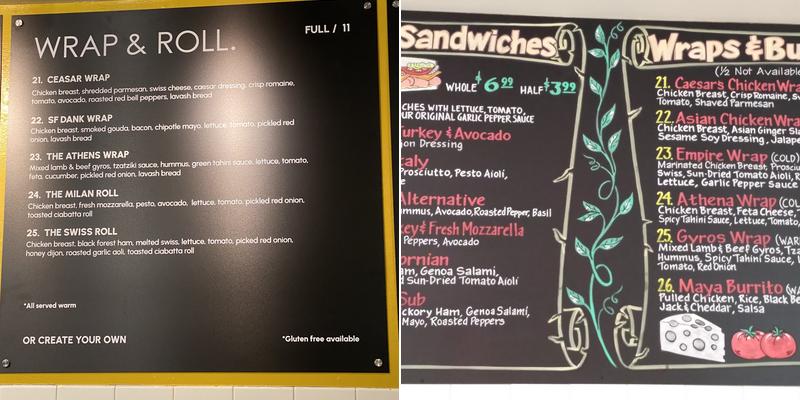 WRAP & ROLL.
FULL / 11
21. CEASAR WRAP
Chicken breast, shredded parmesan, swiss cheese, caesar dressing, crisp romaine,
tomato, avocado, roasted red bell peppers, lavash bread
22. SF DANK WRAP
Chicken breast, smoked gouda, bacon, chipotle mayo, lettuce, tomato, pickled red
onion, lavash bread
23. THE ATHENS WRAP
Mixed lamb & beef gyros, tzatziki sauce, hummus, green tahini sauce, lettuce, tomato,
feta, cucumber, pickled red onion, lavash bread
24. THE MILAN ROLL
Chicken breast, fresh mozzarella, pesto, avocado, lettuce, tomato, pickled red onion,
toasted ciabatta roll
25. THE SWISS ROLL
Chicken breast, black forest ham, melted swiss, lettuce, tomato, pickled red onion,
honey dijon, roasted garlic aoli, toasted ciabatta roll
*All served warm
OR CREATE YOUR OWN
*Gluten free available
Sandwiches
WHOLE $6.99 HALF $3.99
CHES WITH LETTUCE, TOMATO,
UR ORIGINAL GARLIC PEPPER SAUCE
Turkey & Avocado
jon Dressing
Italy
Prosciutto, Pesto Aioli,
e
Alternative
mmus, Avocado, Roasted Pepper, Basil
key & Fresh Mozzarella
Peppers, Avocado
ornian
am, Genoa Salami,
d Sun-Dried Tomato Aioli
Sub
ickory Ham, Genoa Salami,
Mayo, Roasted Peppers
Wraps & Bu
(½ Not Available
21. Caesar's Chicken Wra
Chicken Breast, Crisp Romaine, S
Tomato, Shaved Parmesan
22. Asian Chicken Wra
Chicken Breast, Asian Ginger Sla
Sesame Soy Dressing, Jalape
23. Empire Wrap (COLD)
Marinated Chicken Breast, Prosciu
Swiss, Sun-Dried Tomato Aioli, R
Lettuce, Garlic Pepper Sauce
24. Athena Wrap (COL
Chicken Breast, Feta Cheese,
Spicy Tahini Sauce, Lettuce, Tomato,
25. Gyros Wrap (WAR
Mixed Lamb & Beef Gyros, Tza
Hummus, Spicy Tahini Sauce, L
Tomato, Red Onion
26. Maya Burrito (WA
Pulled Chicken, Rice, Black Be
Jack & Cheddar, Salsa